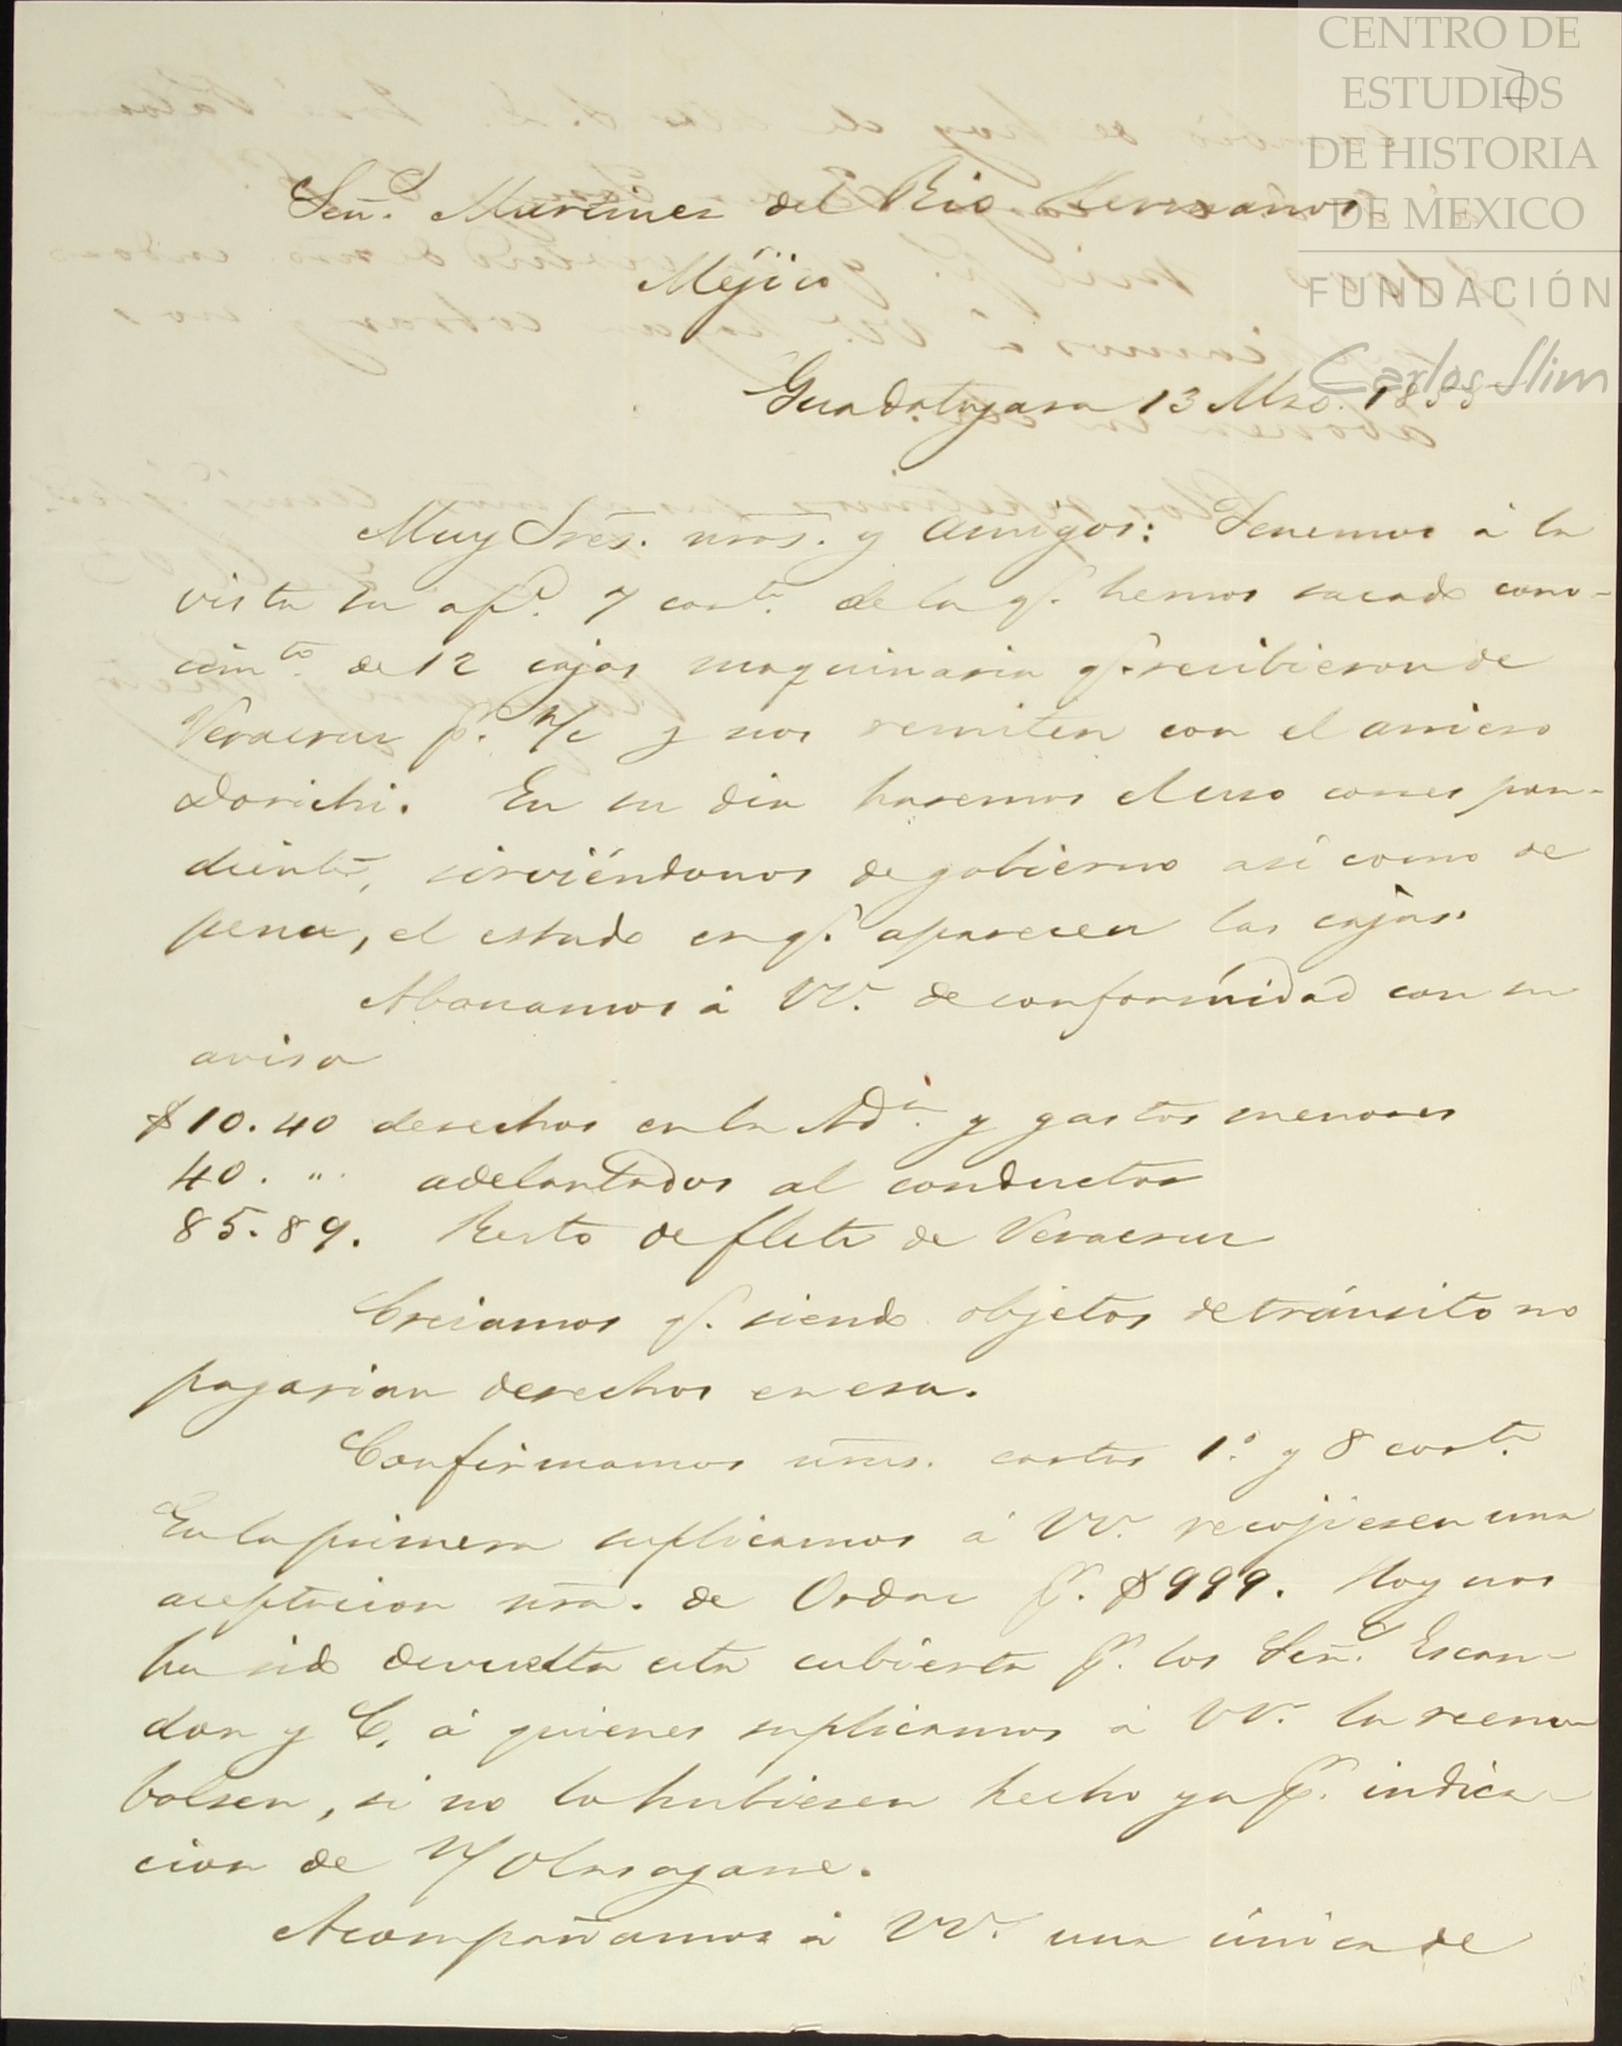 CENTRO DE
ESTUDIOS
DE HISTORIA
DE MEXICO
FUNDACIÓN
Carlos Slim
7
Señ.s Martinez del Rio Hermanos
Méjico
Guadalajara 13 Mzo. 1855
Muy Sres. nros. y amigos: Tenemos á la
vista su ap.da 7 cort.e de la q.e hemos sacado cono-
cim.to de 12 cajas maquinaria q.e recibieron de
Veracruz p.r n/c y nos remiten con el arriero
Dorichi. En su dia haremos el uso correspon-
diente, sirviéndonos de gobierno asi como de
pena, el estado en q.e aparecen las cajas.
Abonamos á VV. de conformidad con su
aviso
$10.40 derechos en la Ad.a y gastos menores
40. " adelantados al conductor
85.89. Resto de flete de Veracruz
Creiamos q.e siendo objetos de tránsito no
pagarian derechos en esa.
Confirmamos nras. cartas 1.o y 8 cort.e
En la primera suplicamos á VV. recojiesen una
aceptacion nra. de Ordaz p.r $999. Hoy nos
ha sido devuelta esta cubierta p.r los Señ.s Escan-
don y C. á quienes suplicamos á VV. la reem-
bolsen, si no lo hubiesen hecho ya p.r indica-
cion de n/ Olasagarre.
Acompañamos á VV. una única de